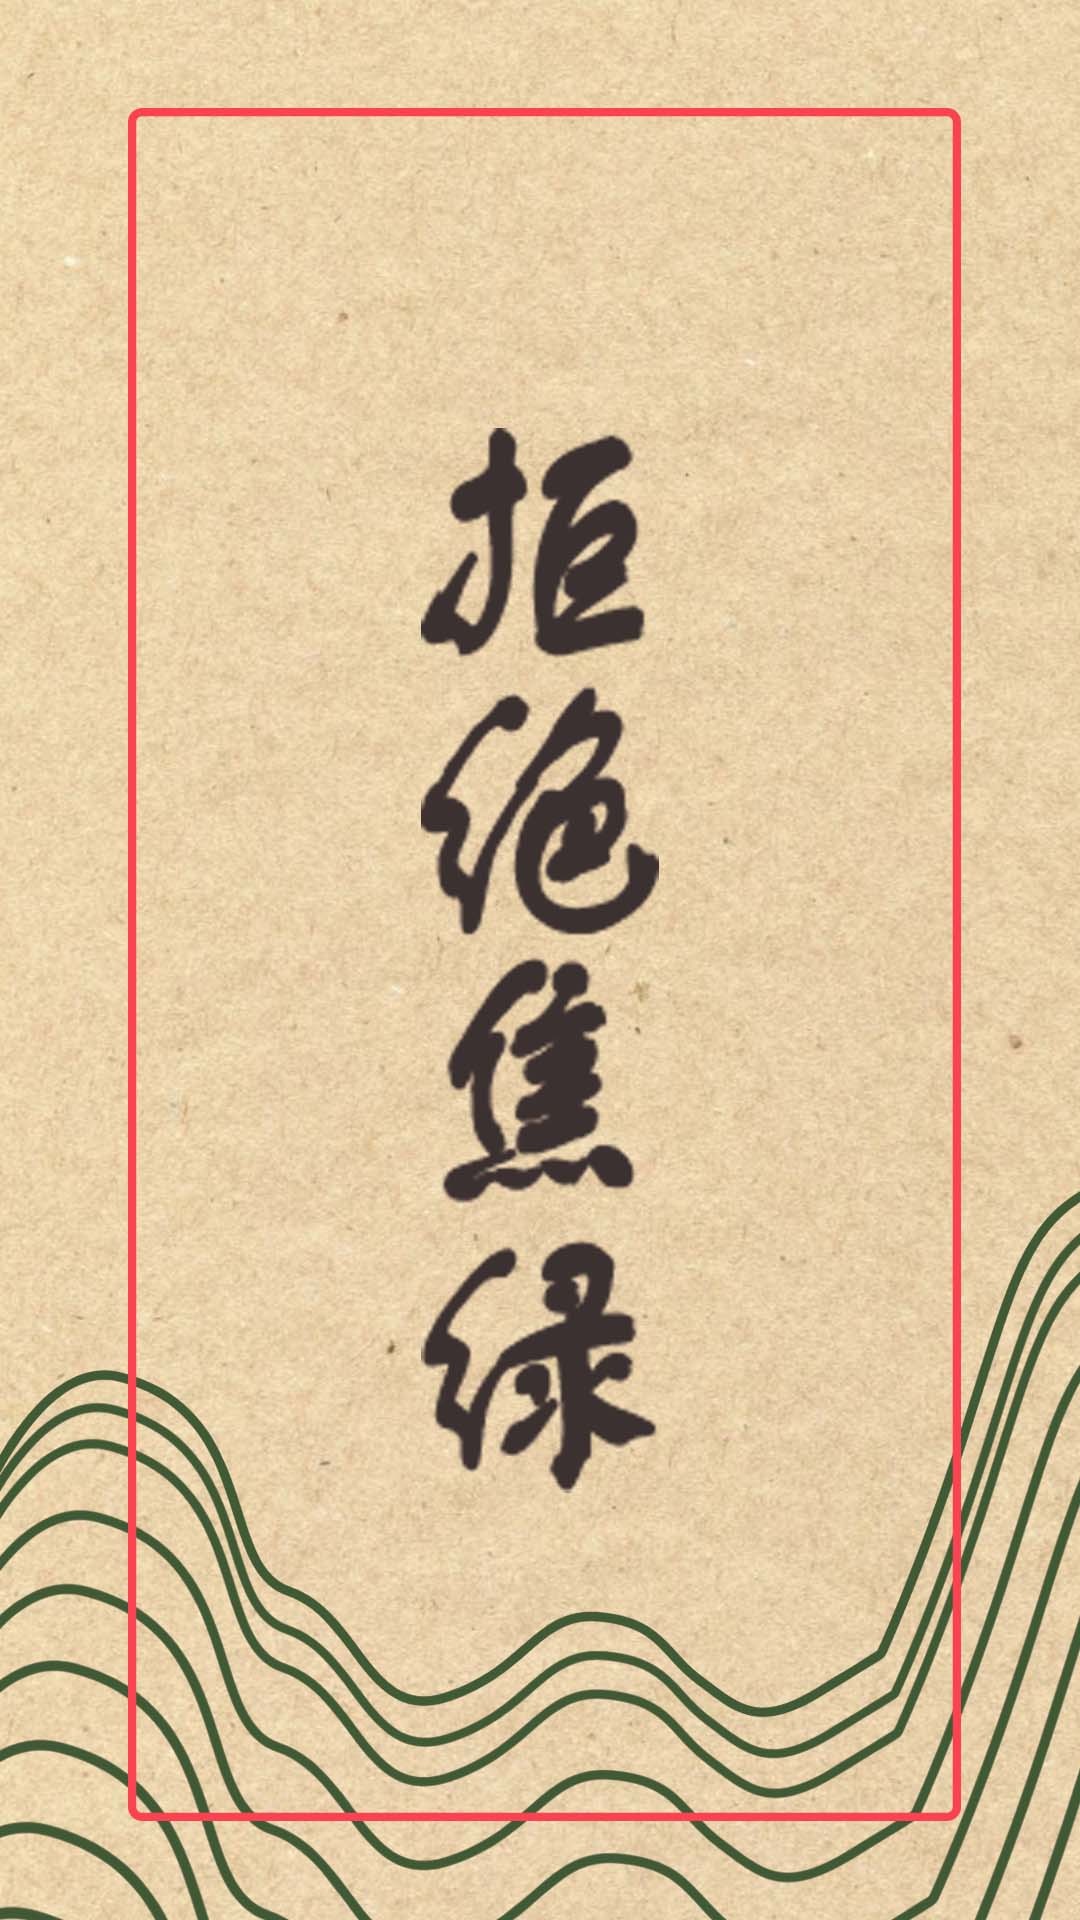 拒绝焦绿